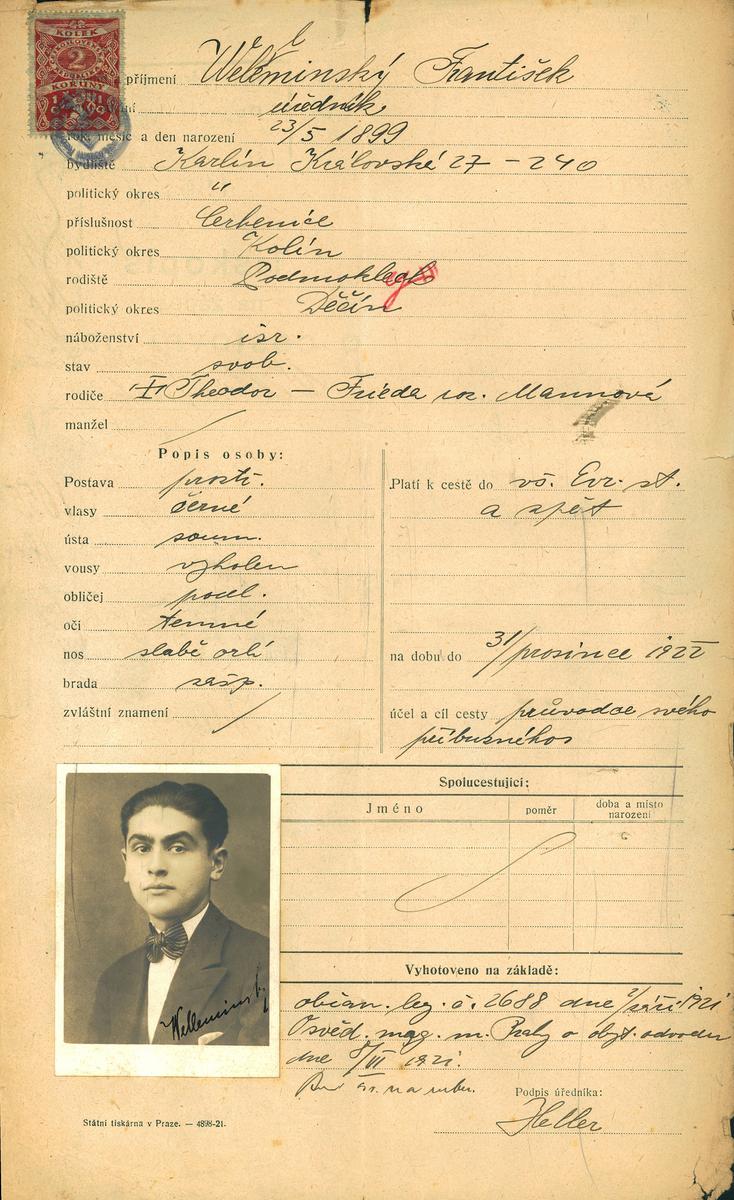 KOLEK
2
KORUNY
1919
příjmení Weleminský František
úředník
rok, měsíc a den narození 23/5 1899
bydliště Karlín Královská 27 - 240
politický okres "
příslušnost Cerhenice
politický okres Kolín
rodiště Podmokly
politický okres Děčín
náboženství isr.
stav svob.
rodiče Theodor - Frieda roz. Mannová
manžel /
Popis osoby:
Postava prostř.
vlasy černé
ústa soum.
vousy vyholen
obličej podl.
oči temné
nos slabě orlí
brada zašp.
zvláštní znamení /
Platí k cestě do vš. Evr. st.
a zpět
na dobu do 31/prosince 1922
účel a cíl cesty průvodce svého
příbuzného
Spolucestující:
Jméno poměr doba a místo
narození
Welleminský
Vyhotoveno na základě:
občan. leg. č. 2688 dne 2/září 1921
Osvěd. mag. m. Prahy o odvodu
dne 8/III 1921.
Podpis úředníka:
Heller
Státní tiskárna v Praze. — 4898-21.